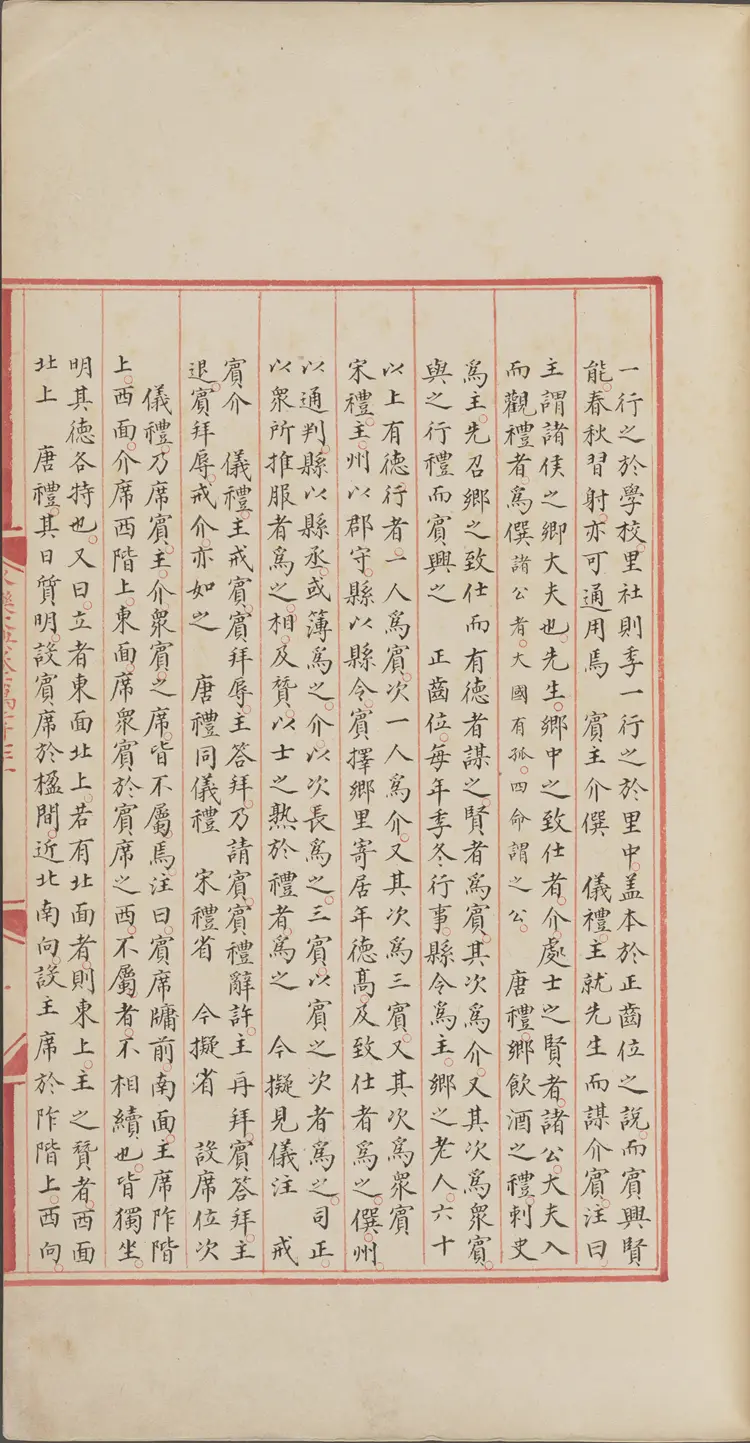 一行之於學校。里社則季一行之於里中。蓋本於正齒位之說。而賓興賢
能。春秋習射。亦可通用焉　賓主介僎　儀禮。主就先生而謀介賓。注曰。
主謂諸侯之卿大夫也。先生。鄉中之致仕者。介。處士之賢者。諸公。大夫入
而觀禮者。爲僎諸公者。大國有孤。四命謂之公。　唐禮。鄉飲酒之禮。刺史
爲主。先召鄉之致仕而有德者謀之。賢者爲賓。其次爲介。又其次爲衆賓。
與之行禮而賓興之　正齒位。每年季冬行事。縣令爲主。鄉之老人。六十
以上有德行者。一人爲賓。次一人爲介。又其次爲三賓。又其次爲衆賓
宋禮。主。州以郡守。縣以縣令。賓擇鄉里寄居年德高。及致仕者爲之。僎。州
以通判。縣以縣丞。或簿爲之。介。以次長爲之。三賓。以賓之次者爲之。司正。
以衆所推服者爲之。相。及贊。以士之熟於禮者。爲之　今擬見儀注　戒
賓介　儀禮。主戒賓。賓拜辱。主答拜。乃請賓。賓禮辭許。主再拜。賓答拜。主
退。賓拜辱。戒介。亦如之　唐禮同儀禮　宋禮省　今擬省　設席位次
儀禮。乃席賓。主。介。衆賓。之席。皆不屬焉。注曰。賓席牖前。南面。主席阼階
上。西面。介席西階上。東面。席衆賓於賓席之西。不屬者。不相續也。皆獨坐。
明其德各特也。又曰。立者東面北上。若有北面者。則東上。主之贊者。西面
北上　唐禮。其日質明。設賓席於楹間。近北南向。設主席於阼階上。西向。